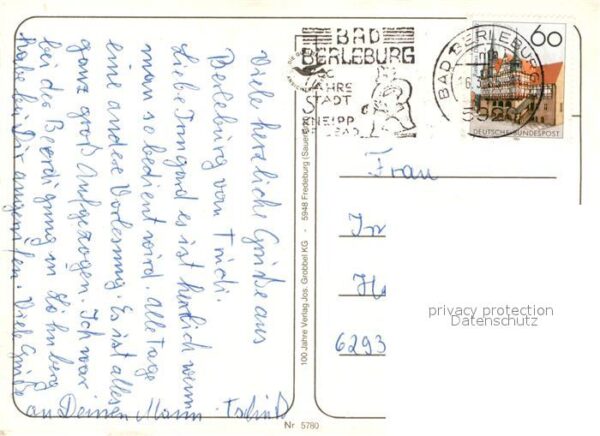 Viele herzliche Grüße aus
Berleburg von Trudi.
Liebe Irmgard es ist herrlich wenn
man so bedient wird. Alle Tage
eine andere Vorlesung. Es ist alles
ganz groß Aufgezogen. Ich war
bei der Beerdigung in
habe bei Dir angerufen. Viele Grüße
an Deinen Mann.
100 Jahre Verlag Jos. Grobbel KG - 5948 Fredeburg (Sauerland)
Nr 5780
BAD
BERLEBURG
JAHRE
STADT
KNEIPP
BAD BERLEBURG
60
DEUTSCHE BUNDESPOST
Frau
6293
privacy protection
Datenschutz